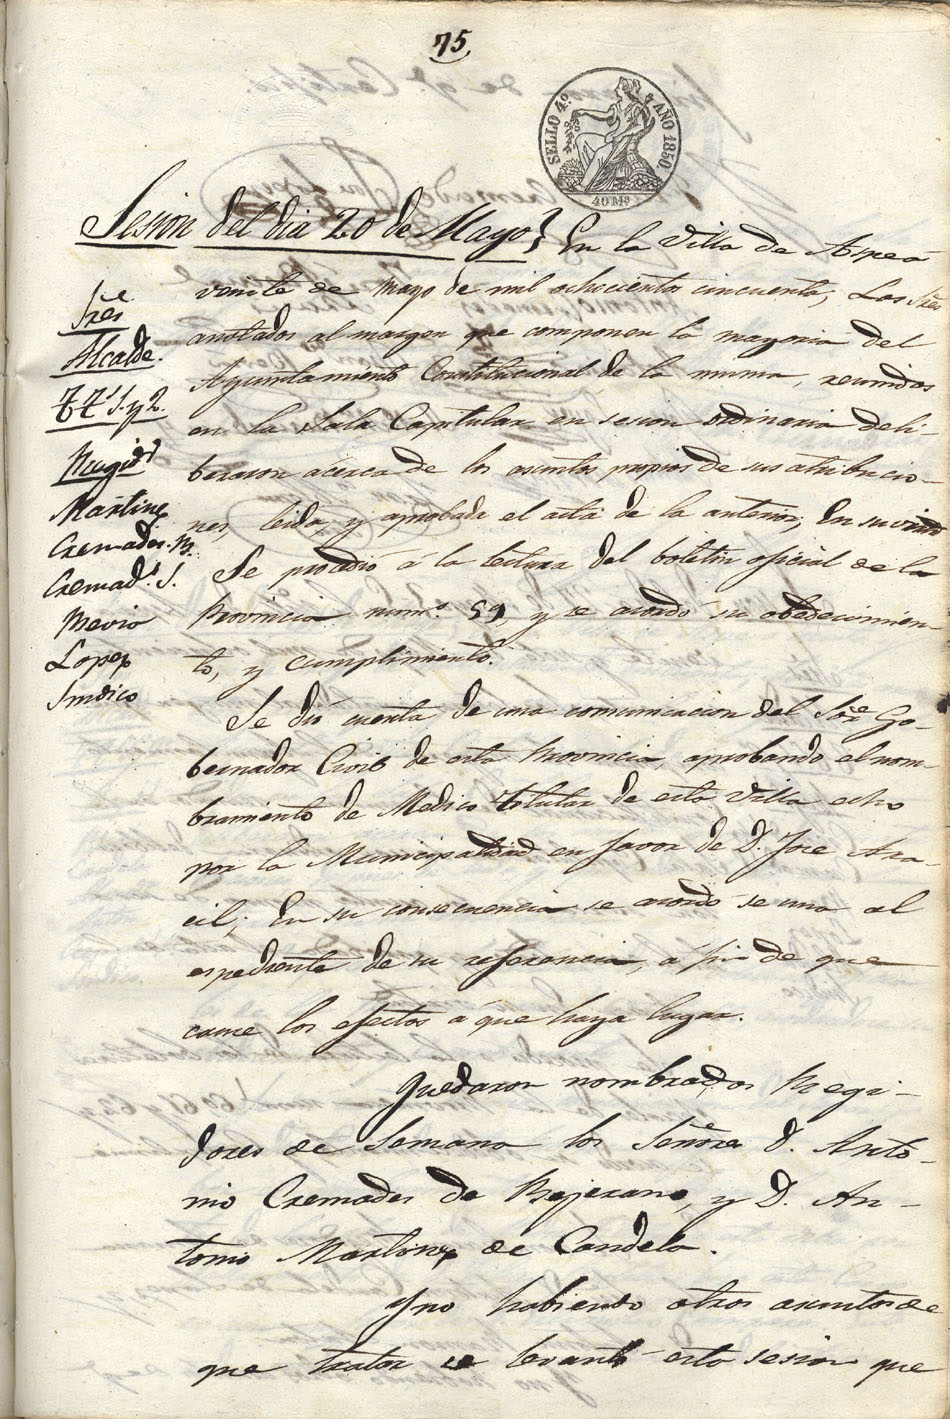 75.
SELLO 4º. AÑO 1850.
40 Mˢ
Sesion del dia 20 de Mayo} En la Villa de Aspe á
veinte de Mayo de mil ochocientos cincuenta, Los Sres
anotados al margen que componen la mayoria del
Ayuntamiento Constitucional de la misma, reunidos
en la Sala Capitular en sesion ordinaria deli-
beraron acerca de los asuntos propios de sus atribucio-
nes, leida, y aprobada el acta de la anterior; En su virtud
Se procedió á la lectura del boletin oficial de la
Provincia num.º 59, y se acordó su obedecimien-
to, y cumplimiento.
Se dió cuenta de una comunicacion del Sor. Go-
bernador Civil de esta Provincia, aprobando el nom-
bramiento de Medico titular de esta Villa echo
por la Municipalidad en favor de D. Jose Ara-
cil; En su consecuencia se acordó se una al
espediente de su referencia, á fin de que
cause los efectos á que haya lugar.
Quedaron nombrados Regi-
dores de Semana los Señores D. Anto-
nio Cremades de Bejerano, y D. An-
tonio Martinez de Candela.
Y no habiendo otros asuntos de
que tratar se levantó esta sesion que
Sres
Alcalde.
TTˢ 1. y 2.
Regidˢ
Martinez
Cremades. B.
Cremadˢ. S.
Mevio
Lopez
Sindico